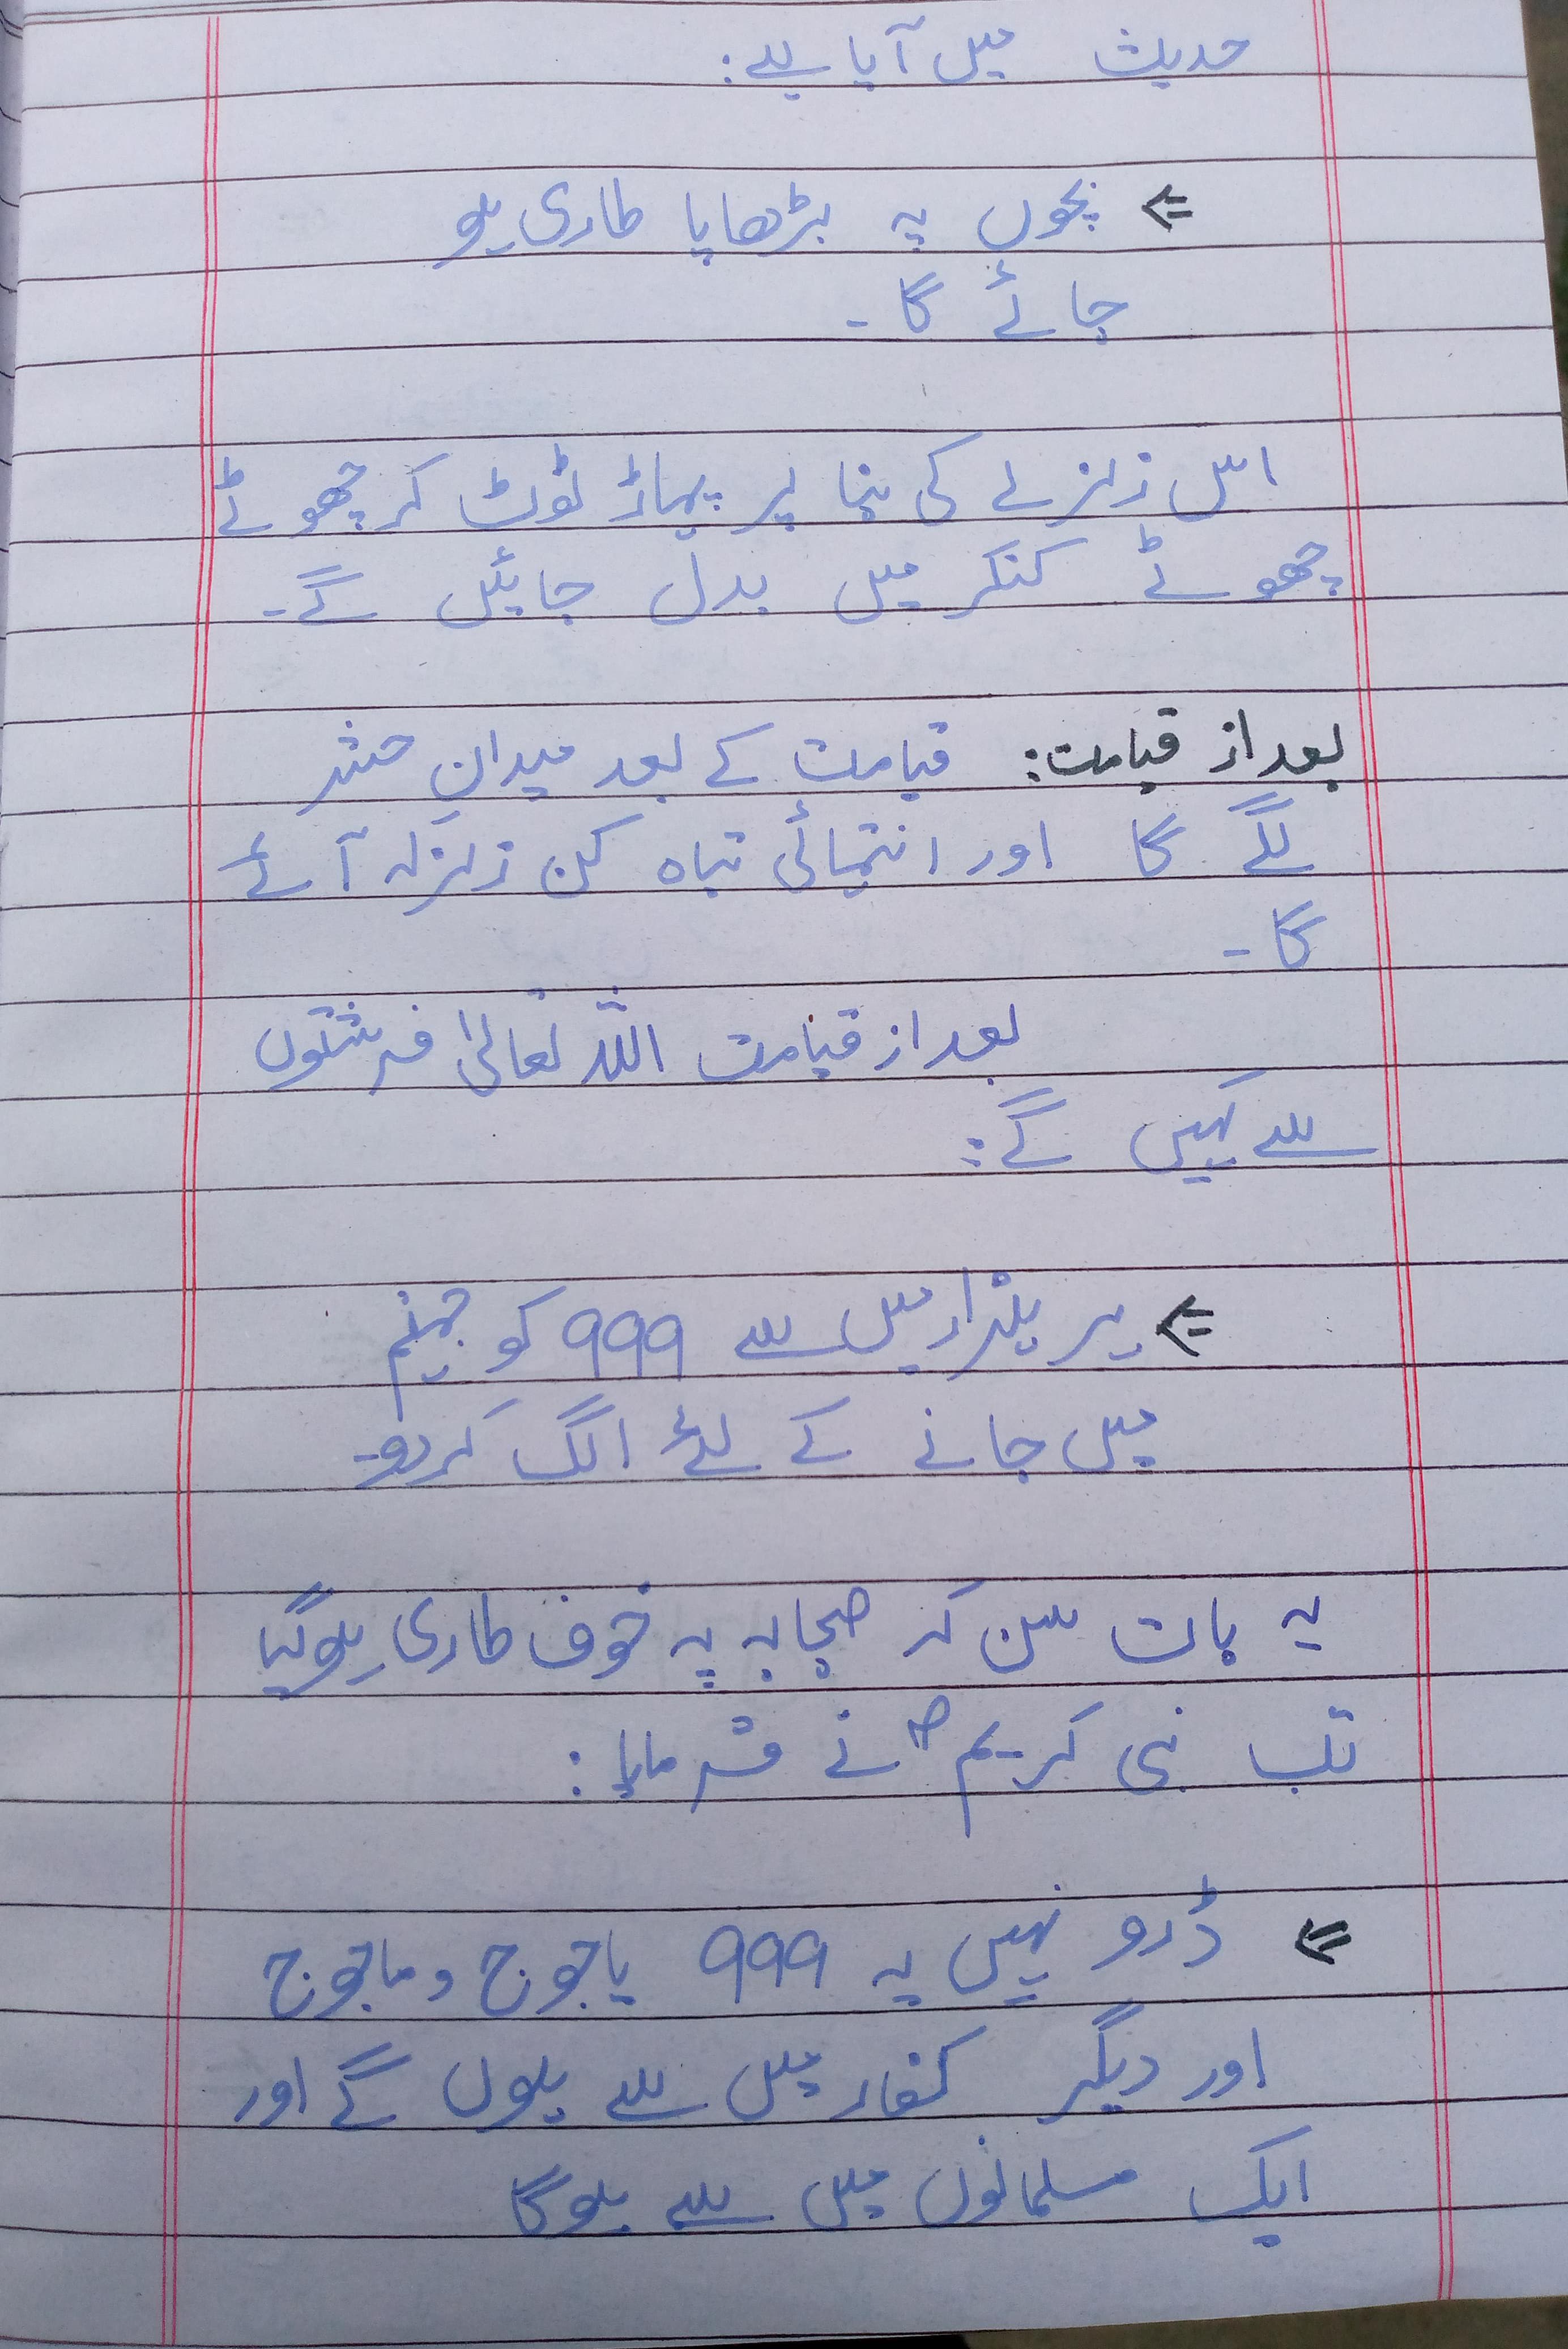 حدیث میں آیا ہے:
⇐ بچوں پہ بڑھاپا طاری ہو
جائے گا۔
اس زلزلے کی بنا پر پہاڑ ٹوٹ کر چھوٹے
چھوٹے کنکر میں بدل جائیں گے۔
بعد از قیامت: قیامت کے بعد میدانِ حشر
لگے گا اور انتہائی تباہ کن زلزلہ آئے
گا۔
بعد از قیامت اللہ تعالیٰ فرشتوں
سے کہیں گے:
⇐ ہر ہزار میں سے 999 کو جہنم
میں جانے کے لئے الگ کر دو۔
یہ بات سن کر صحابہ پہ خوف طاری ہو گیا
تب نبی کریمؐ نے فرمایا:
⇐ ڈرو نہیں یہ 999 یاجوج و ماجوج
اور دیگر کفار میں سے ہوں گے اور
ایک مسلمانوں میں سے ہو گا